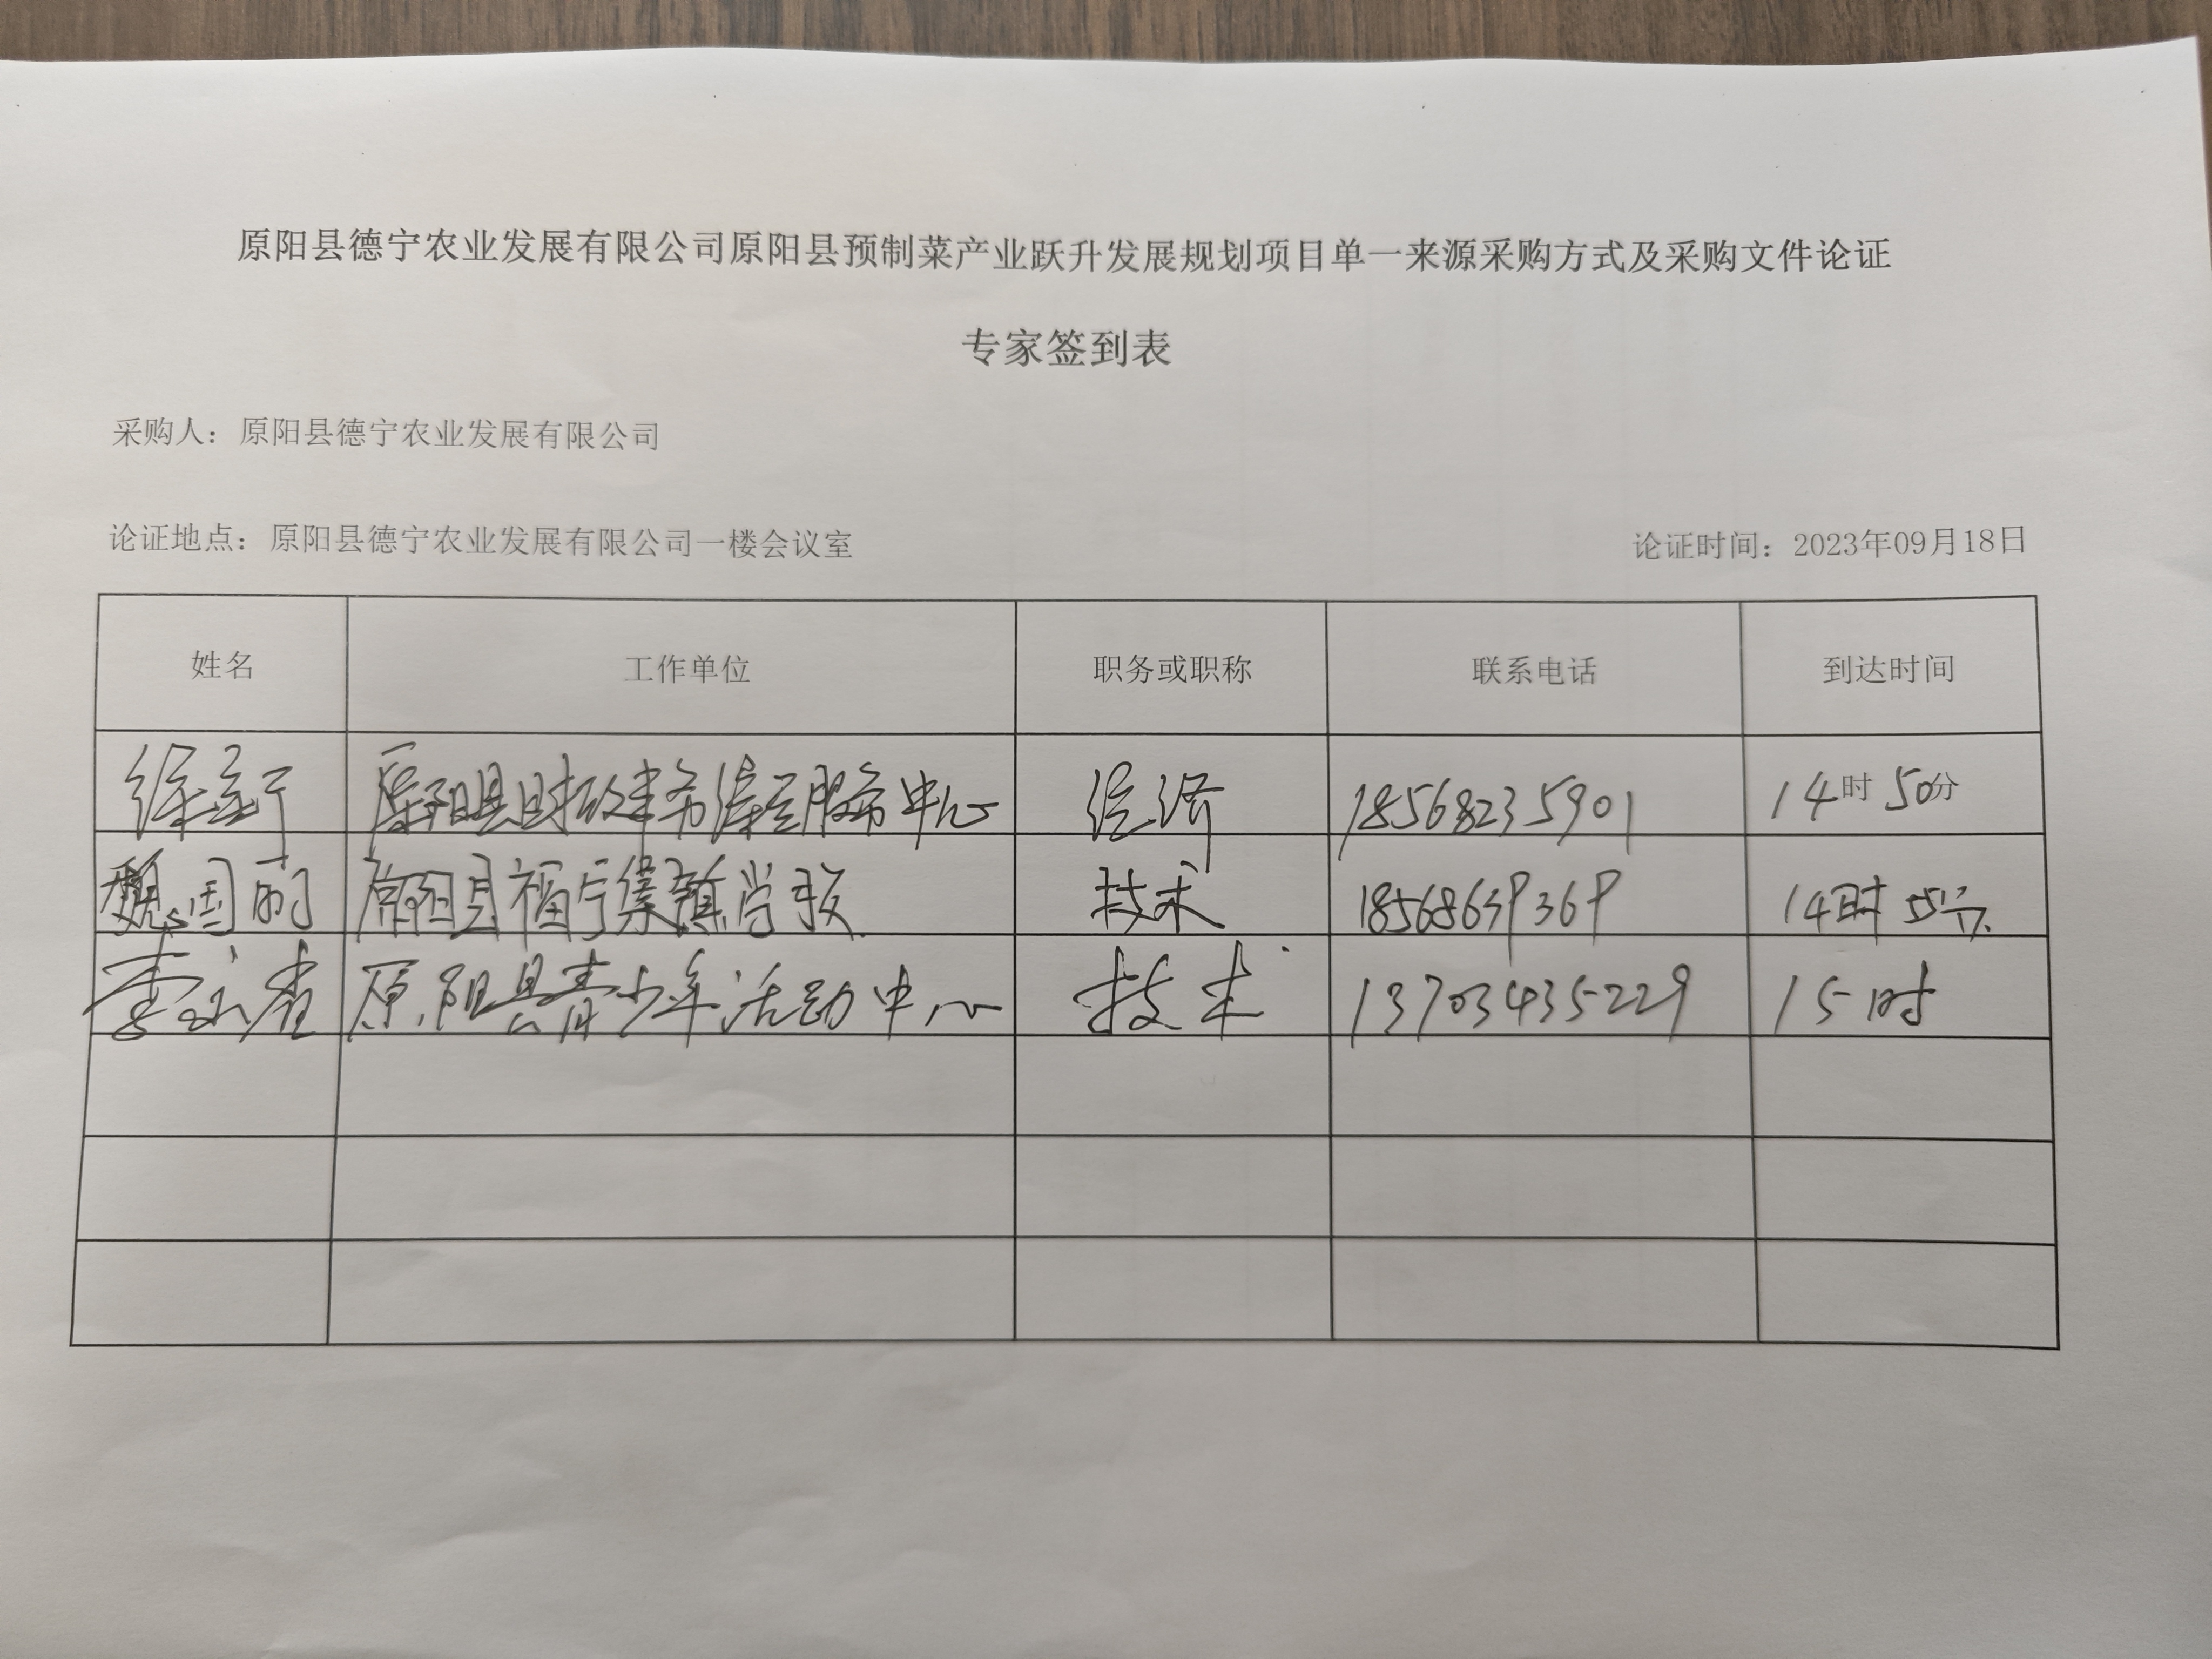 原阳县德宁农业发展有限公司原阳县预制菜产业跃升发展规划项目单一来源采购方式及采购文件论证
专家签到表
采购人：原阳县德宁农业发展有限公司
论证地点：原阳县德宁农业发展有限公司一楼会议室 论证时间：2023年09月18日
姓名 工作单位 职务或职称 联系电话 到达时间
原阳县财政事务综合服务中心 经济 18568235901 14时50分
魏国 原阳县福宁集镇学校 技术 18568639369 14时55分
李 原阳县青少年活动中心 技术 13703435229 15时